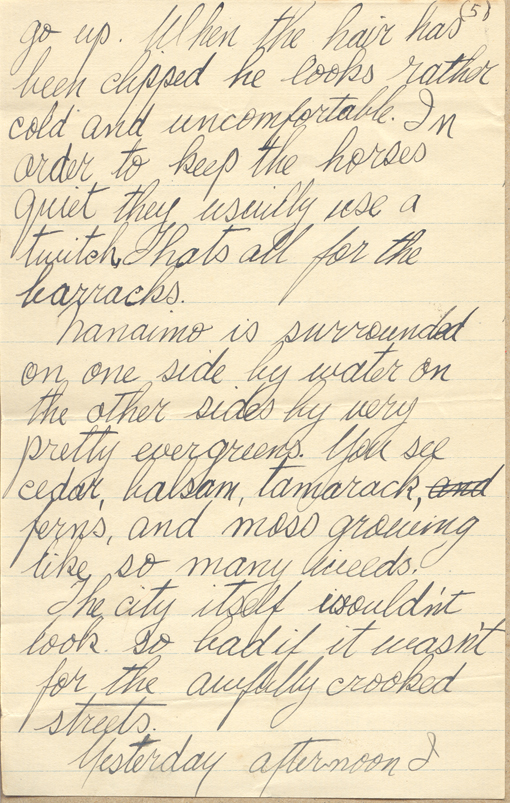 (5)
go up. When the hair has
been clipped he looks rather
cold and uncomfortable. In
order to keep the horses
quiet they usuilly use a
twitch. Thats all for the
barracks.
Nanaimo is surrounded
on one side by water on
the other sides by very
pretty evergreens. You see
cedar, balsam, tamarack, and
ferns, and moss growing
like so many weeds.
The city itself wouldn't
look so bad if it wasn't
for the awfully crooked
streets.
Yesterday afternoon I